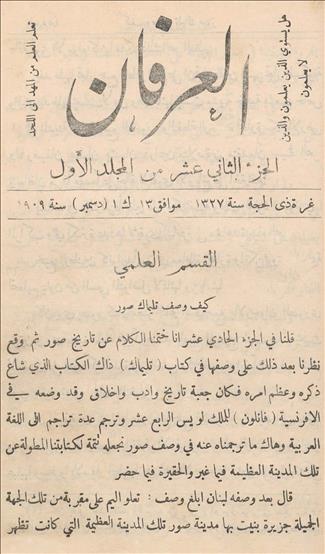 هل يستوي الذين يعلمون والذين
لا يعلمون
العرفان
تعلم العلم من المهد الى اللحد
الجزء الثاني عشر من المجلد الأول
غرة ذى الحجة سنة ١٣٢٧ موافق ١٣ ك ١ (دسمبر) سنة ٩٠٩
القسم العلمي
كيف وصف تليماك صور
قلنا في الجزء الحادي عشر انا ختمنا الكلام عن تاريخ صور ثم وقع
نظرنا بعد ذلك على وصفها في كتاب (تليماك) ذاك الكتاب الذي شاع
ذكره وعظم امره فكان جعبة تاريخ وادب واخلاق وقد وضعه في
الافرنسية (فانلون) للملك لويس الرابع عشر وترجم عدة تراجم الى اللغة
العربية وهاك ما ترجمناه عنه في وصف صور نجعله تتمة لكتابتنا المطولة عن
تلك المدينة العظيمة فيما غبر والحقيرة فيما حضر
قال بعد وصفه لبنان ابلغ وصف : تعلو اليم على مقربة من تلك الجهة
الجميلة جزيرة بنيت بها مدينة صور تلك المدينة العظيمة التي كانت تظهر